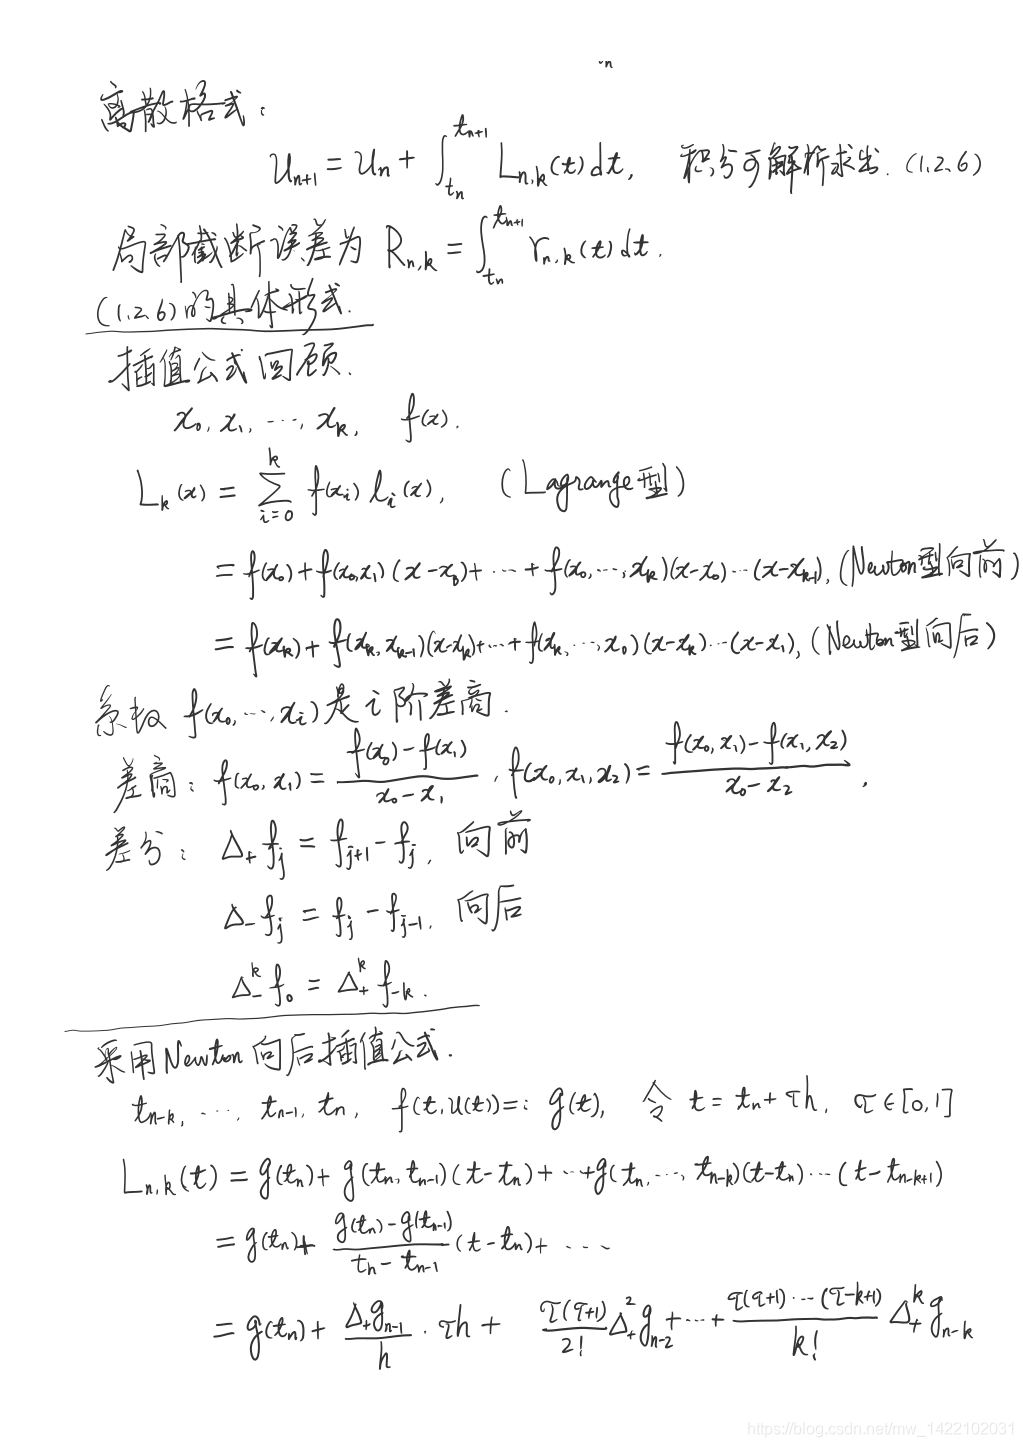 离散格式:
u_{n+1} = u_n + ∫_{t_n}^{t_{n+1}} L_{n,k}(t)dt, 积分可解析求出. (1.2.6)
局部截断误差为 R_{n,k} = ∫_{t_n}^{t_{n+1}} r_{n,k}(t)dt.
(1.2.6)的具体形式.
插值公式回顾.
x_0, x_1, ⋯, x_k, f(x).
L_k(x) = ∑_{i=0}^{k} f(x_i) l_i(x), (Lagrange型)
= f(x_0) + f(x_0,x_1)(x-x_0) + ⋯ + f(x_0,⋯,x_k)(x-x_0)⋯(x-x_{k-1}), (Newton型向前)
= f(x_k) + f(x_k,x_{k-1})(x-x_k) + ⋯ + f(x_k,⋯,x_0)(x-x_k)⋯(x-x_1), (Newton型向后)
系数 f(x_0,⋯,x_i)是i阶差商.
差商: f(x_0,x_1) = \frac{f(x_0)-f(x_1)}{x_0-x_1}, f(x_0,x_1,x_2) = \frac{f(x_0,x_1)-f(x_1,x_2)}{x_0-x_2},
差分: Δ_+ f_j = f_{j+1} - f_j, 向前
Δ_- f_j = f_j - f_{j-1}, 向后
Δ_-^k f_0 = Δ_+^k f_{-k}.
采用Newton向后插值公式.
t_{n-k}, ⋯, t_{n-1}, t_n, f(t,u(t)) =: g(t), 令 t = t_n + τh, τ∈[0,1]
L_{n,k}(t) = g(t_n) + g(t_n,t_{n-1})(t-t_n) + ⋯ + g(t_n,⋯,t_{n-k})(t-t_n)⋯(t-t_{n-k+1})
= g(t_n) + \frac{g(t_n)-g(t_{n-1})}{t_n-t_{n-1}}(t-t_n) + ⋯
= g(t_n) + \frac{Δ_+ g_{n-1}}{h}·τh + \frac{τ(τ+1)}{2!}Δ_+^2 g_{n-2} + ⋯ + \frac{τ(τ+1)⋯(τ-k+1)}{k!}Δ_+^k g_{n-k}
https://blog.csdn.net/mw_1422102031